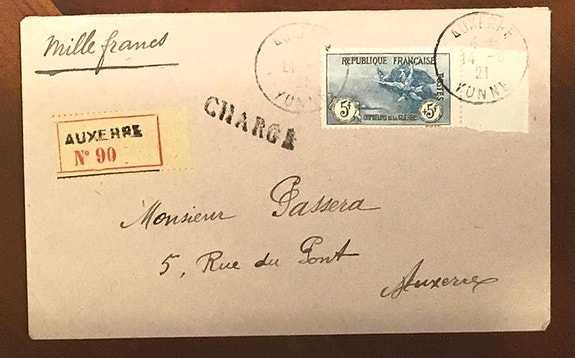 Mille francs
AUXERRE
YONNE
RÉPUBLIQUE FRANÇAISE
POSTES
5F
+5F
ORPHELINS DE LA GUERRE
AUXERRE
21
YONNE
CHARGÉ
AUXERRE
N° 90
Monsieur Passera
5, Rue du Pont
Auxerre